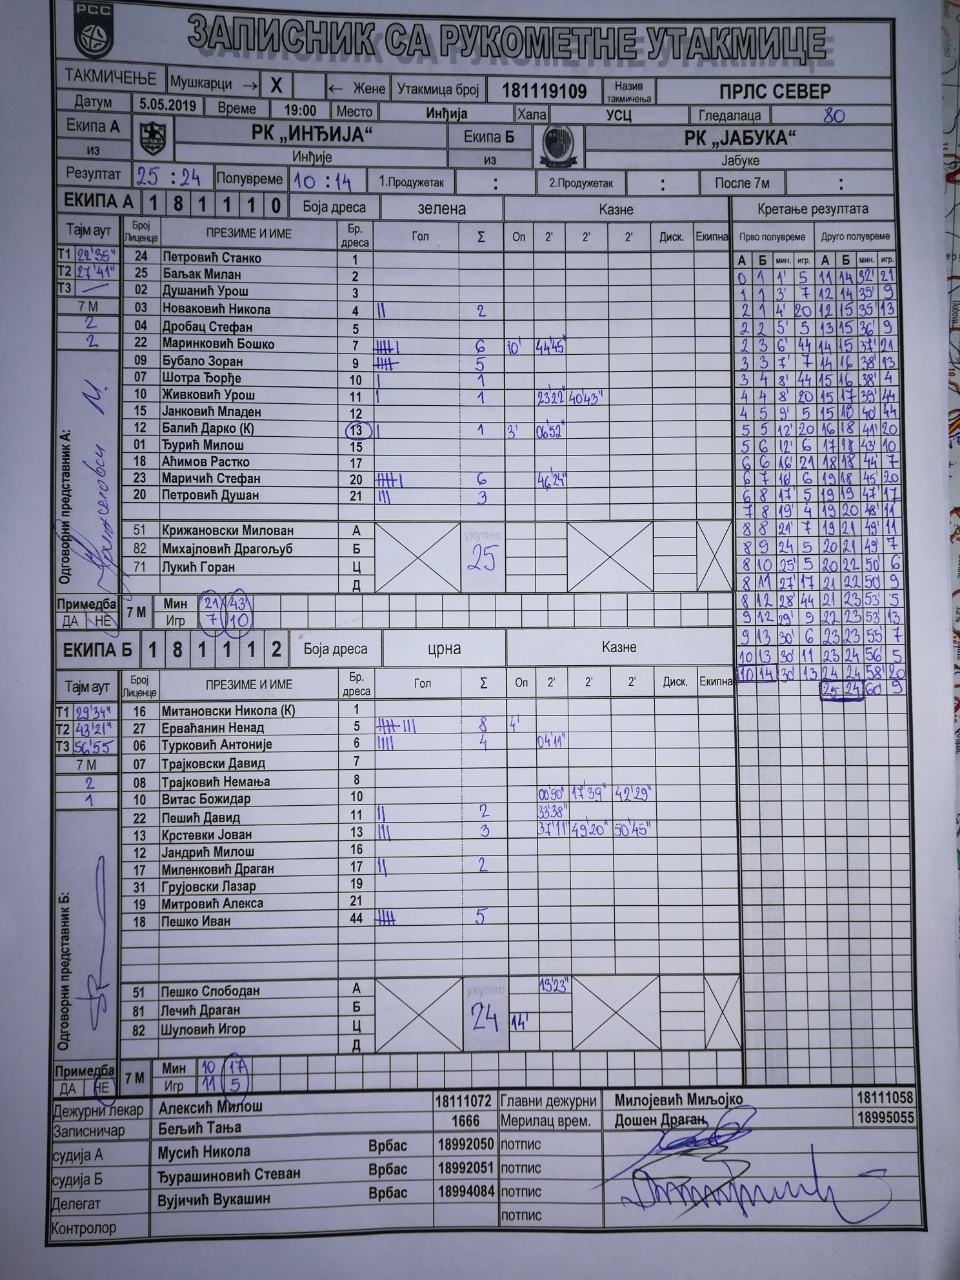 РСС
ЗАПИСНИК СА РУКОМЕТНЕ УТАКМИЦЕ
ТАКМИЧЕЊЕ Мушкарци → X ← Жене Утакмица број 181119109 Назив такмичења ПРЛС СЕВЕР
Датум 5.05.2019 Време 19:00 Место Инђија Хала УСЦ Гледалаца 80
Екипа А РК „ИНЂИЈА“ Екипа Б РК „ЈАБУКА“
из Инђије из Јабуке
Резултат 25 : 24 Полувреме 10 : 14 1.Продужетак : 2.Продужетак : После 7м :
ЕКИПА А 1 8 1 1 1 0 Боја дреса зелена Казне Кретање резултата
Тајм аут Број Лиценце ПРЕЗИМЕ И ИМЕ Бр. дреса Гол Σ Оп 2' 2' 2' Диск. Екипна Прво полувреме Друго полувреме
А Б мин. игр. А Б мин. игр.
Т1 22'35" 24 Петровић Станко 1
Т2 27'41" 25 Баљак Милан 2
Т3 / 02 Душанић Урош 3
7 М 03 Новаковић Никола 4 || 2
2 04 Дробац Стефан 5
2 22 Маринковић Бошко 7 6 10' 44'45"
09 Бубало Зоран 9 5
07 Шотра Ђорђе 10 | 1
10 Живковић Урош 11 | 1 23'22" 40'43"
15 Јанковић Младен 12
12 Балић Дарко (К) 13 1 3' 06'52"
01 Ђурић Милош 15
18 Аћимов Растко 17
23 Маричић Стефан 20 6 46'24"
20 Петровић Душан 21 ||| 3
51 Крижановски Милован А укупно
82 Михајловић Драгољуб Б 25
71 Лукић Горан Ц
Д
Одговорни представник А:
Примедба ДА НЕ 7 М Мин 21 43
Игр 7 10
0 1 1' 5 11 14 32' 21
1 1 3' 7 12 14 35' 9
2 1 4' 20 12 15 35' 13
2 2 5' 5 13 15 36' 9
2 3 6' 44 14 15 37' 21
3 3 7' 7 14 16 38' 13
3 4 8' 44 15 16 38' 4
4 4 8' 20 15 17 39' 44
4 5 9' 5 15 18 40' 44
5 5 12' 20 16 18 41' 20
5 6 12' 6 17 18 43' 10
6 6 16' 21 18 18 44' 7
6 7 16' 6 19 18 45' 20
6 8 17' 5 19 19 47' 17
7 8 19' 4 19 20 48' 11
8 8 21' 7 19 21 49' 11
8 9 24' 5 20 21 49' 7
8 10 25' 5 20 22 50' 6
8 11 27' 17 21 22 50' 9
8 12 28' 44 21 23 53' 5
9 12 29' 9 22 23 53' 13
9 13 30' 6 23 23 55' 7
10 13 30' 11 23 24 56' 5
10 14 30' 13 24 24 58' 20
25 24 60 9
ЕКИПА Б 1 8 1 1 1 2 Боја дреса црна Казне
Тајм аут Број Лиценце ПРЕЗИМЕ И ИМЕ Бр. дреса Гол Σ Оп 2' 2' 2' Диск. Екипна
Т1 29'34" 16 Митановски Никола (К) 1
Т2 43'21" 27 Ерваћанин Ненад 5 8 4'
Т3 56'55 06 Турковић Антоније 6 |||| 4 04'11"
7 М 07 Трајковски Давид 7
2 08 Трајковић Немања 8
1 10 Витас Божидар 10 00'50" 17'39" 42'29"
22 Пешић Давид 11 || 2 33'38"
13 Крстевки Јован 13 ||| 3 37'11" 49'20" 50'45"
12 Јандрић Милош 16
17 Миленковић Драган 17 || 2
31 Грујовски Лазар 19
19 Митровић Алекса 21
18 Пешко Иван 44 5
51 Пешко Слободан А укупно 13'23"
81 Лечић Драган Б 24
82 Шуловић Игор Ц 14'
Д
Одговорни представник Б:
Примедба ДА НЕ 7 М Мин 10 17
Игр 11 5
Дежурни лекар Алексић Милош 18111072 Главни дежурни Милојевић Миљојко 18111058
Записничар Бељић Тања 1666 Мерилац врем. Дошен Драган 18995055
судија А Мусић Никола Врбас 18992050 потпис
судија Б Ђурашиновић Стеван Врбас 18992051 потпис
Делегат Вујичић Вукашин Врбас 18994084 потпис
Контролор потпис